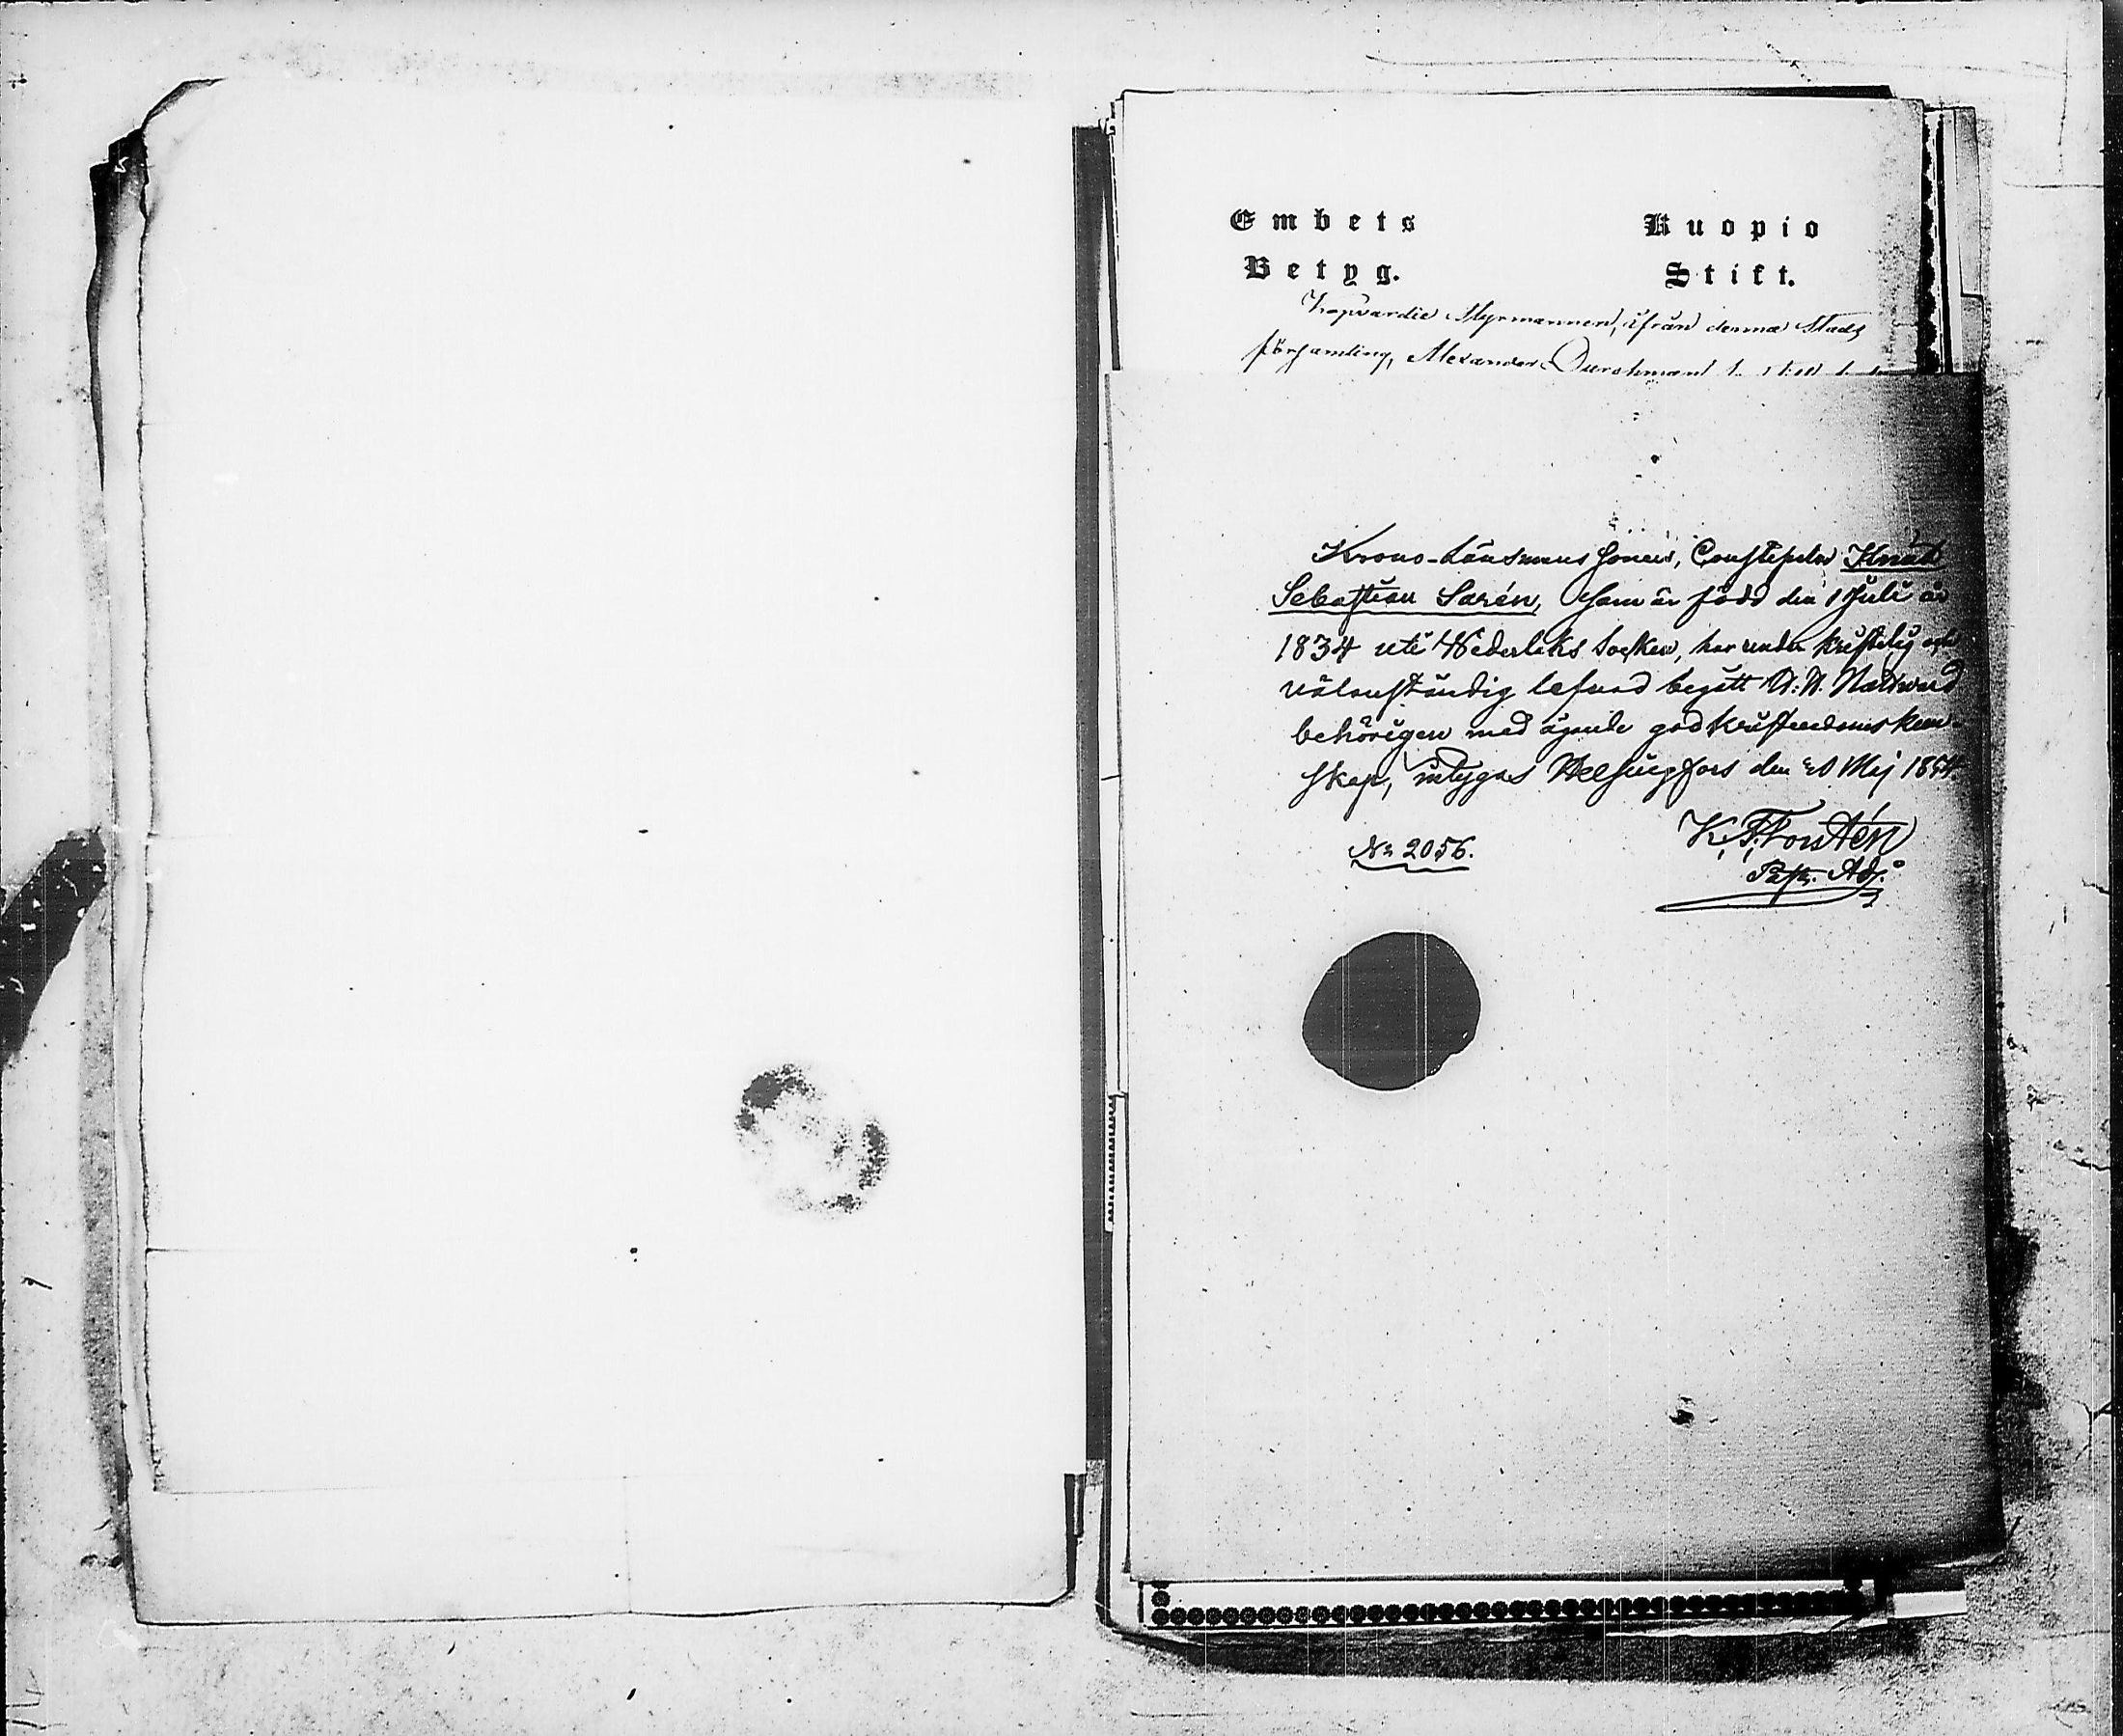 Embets Kuopio
Betyg. Stift.
Kopvardie Styrmannen, ifrån denna Stads
församling, Alexander
Krono-Länsmans Sonen, Constapelen Knut
Sebastian Sarén, som är född den 1 Juli år
1834 uti Wederlaks Socken, har under kristelig och
välanständig lefnad begått H. H. Nattward
behörigen med ägande god kristendoms kun-
skap, intygas Helsingfors den 20 Maj 1854
K. F. Forstén
No 2056. Past. Adj.